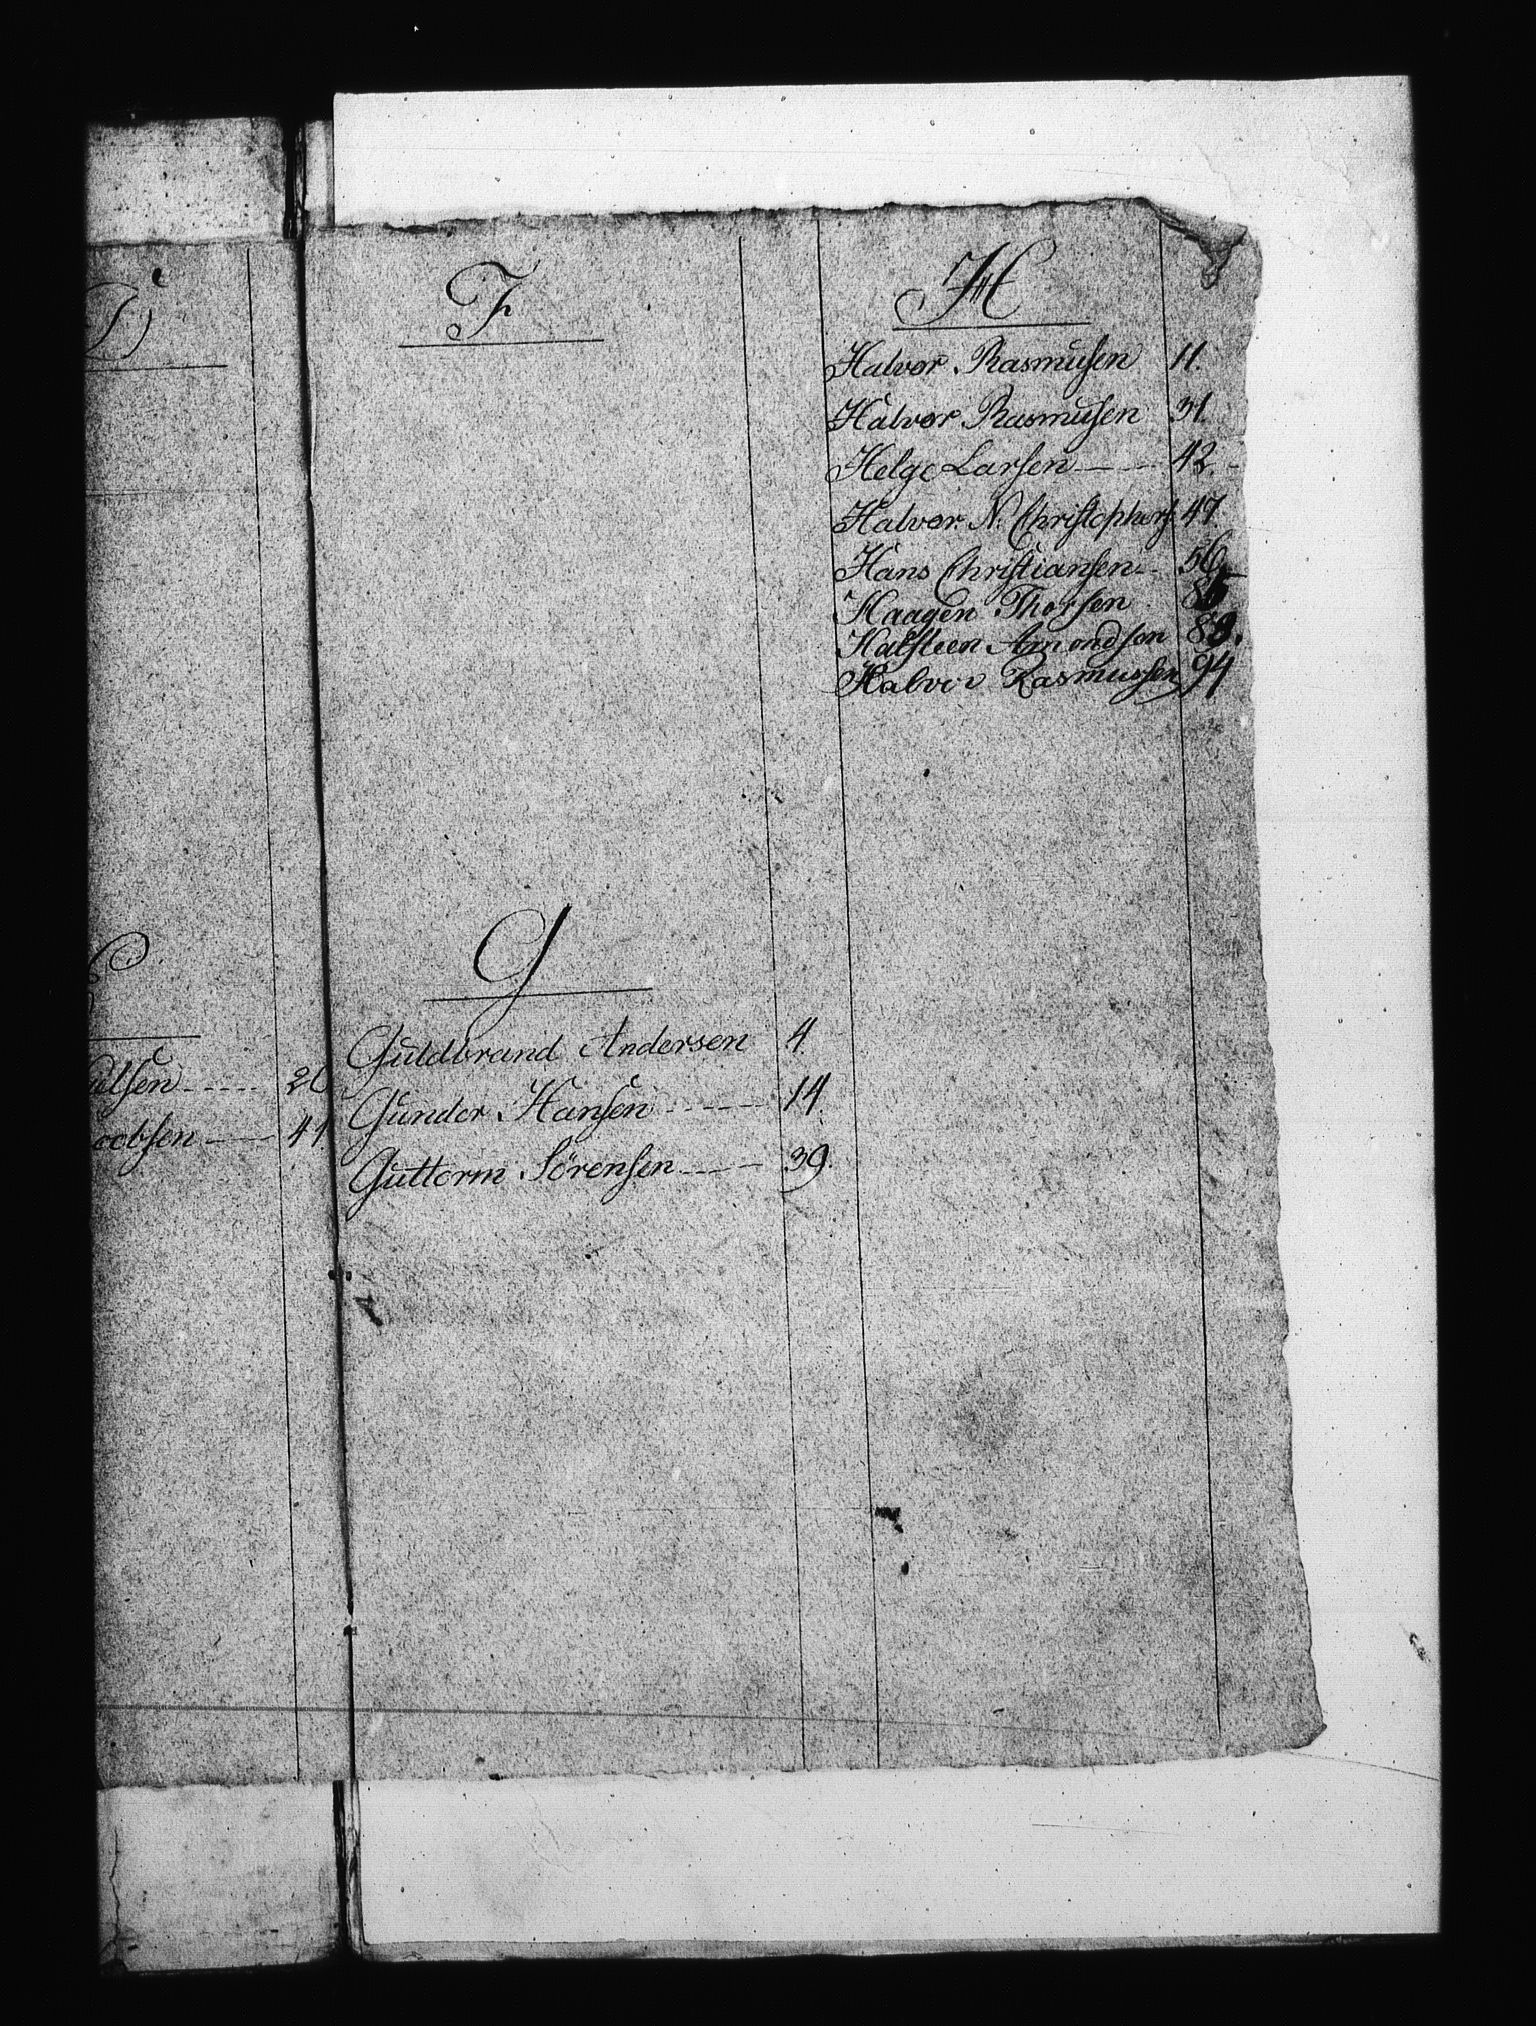 D
E
ulsen ----- 26
cobsen --- 41
F
G
Guldbrand Andersen 4.
Gunder Hansen ----- 14.
Guttorm Sörensen ---- 39.
H
Halvor Rasmusen 11.
Halvor Rasmusen 31.
Helge Larsen ---- 42.
Halvor N. Christophers. 47
Hans Christiansen -- 56
Haagen Thorsen 85
Halsteen Amondson 88.
Halvor Rasmussen 94